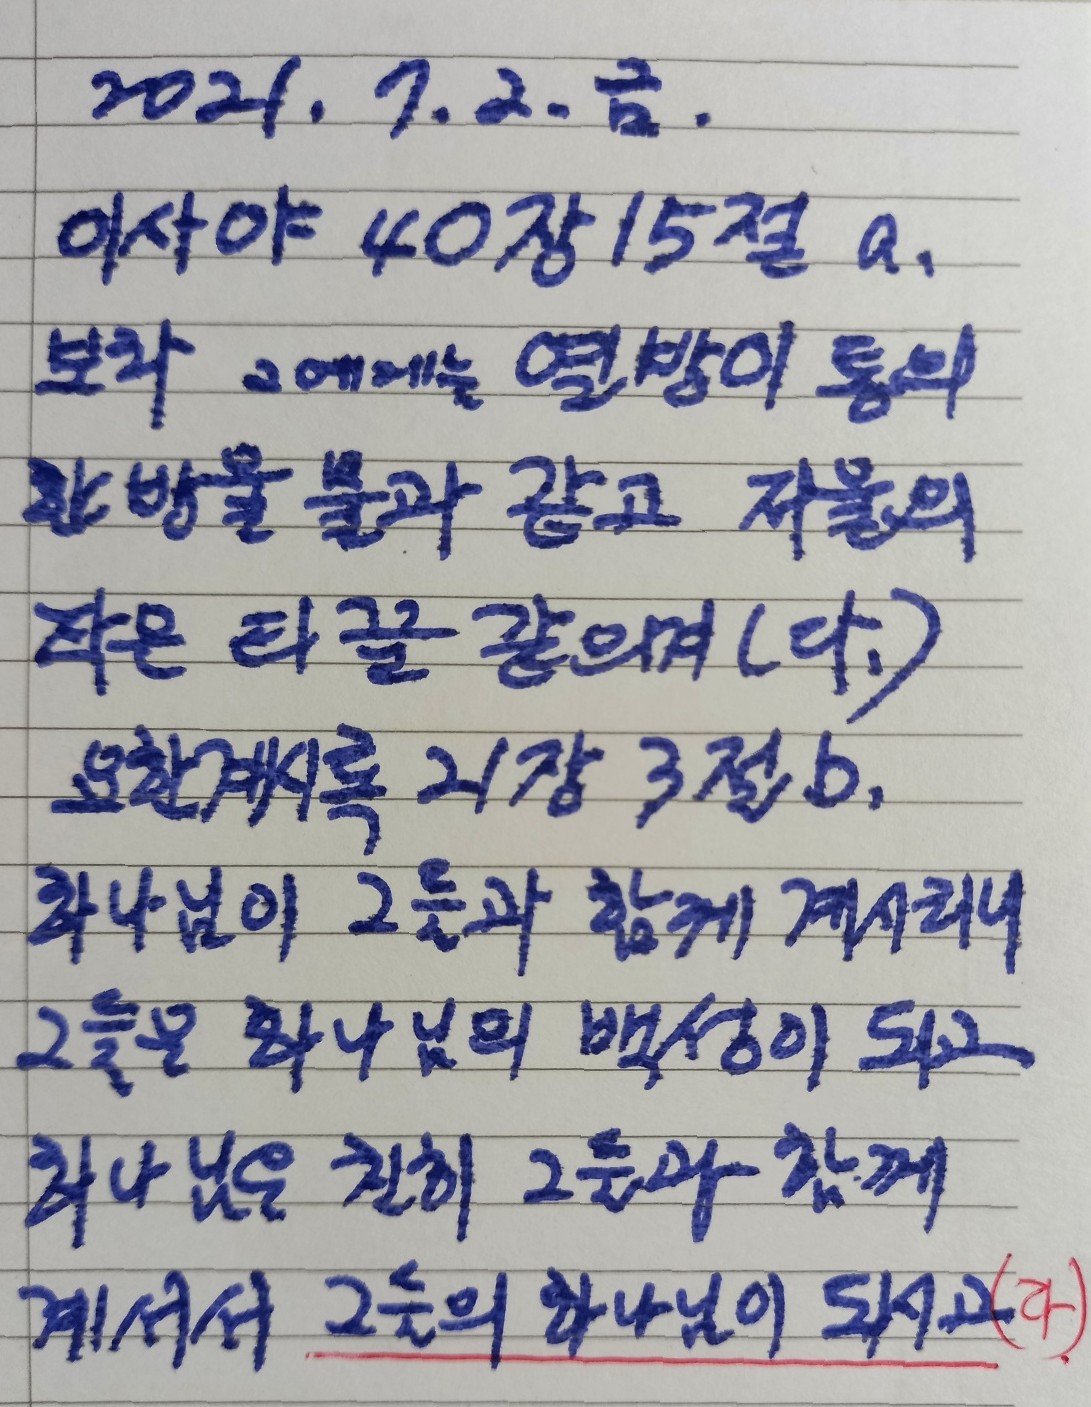 2021. 7. 2. 금.
이사야 40장 15절 a.
보라 그에게는 열방이 통의
한 방울 물과 같고 저울의
작은 티끌 같으며(다.)
요한계시록 21장 3절 b.
하나님이 그들과 함께 계시리니
그들은 하나님의 백성이 되고
하나님은 친히 그들과 함께
계셔서 그들의 하나님이 되시고(라.)